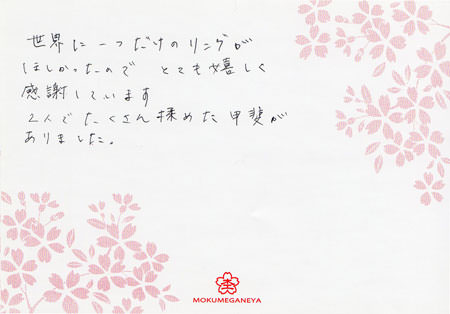 世界に一つだけのリングが
ほしかったので とても嬉しく
感謝しています
2人でたくさん揉めた甲斐が
ありました。
MOKUMEGANEYA